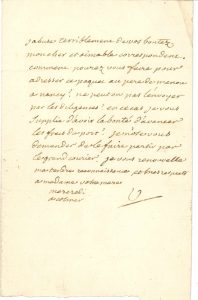 jabuse terriblement de vos bontez
mon cher et aimable correspondent.
comment pourez vous faire pour
adresser ce paquet au pere de menou
a nancy? ne peut on pas l'envoyer
par les diligences? en ce cas je vous
suplie d'avoir la bonté d'avancer
les frais du port? je n'ose vous
demander de le faire partir par
le grand courier. je vous renouvelle
ma tendre reconnaissance et mes respects
a madame votre mere
mercredi
V